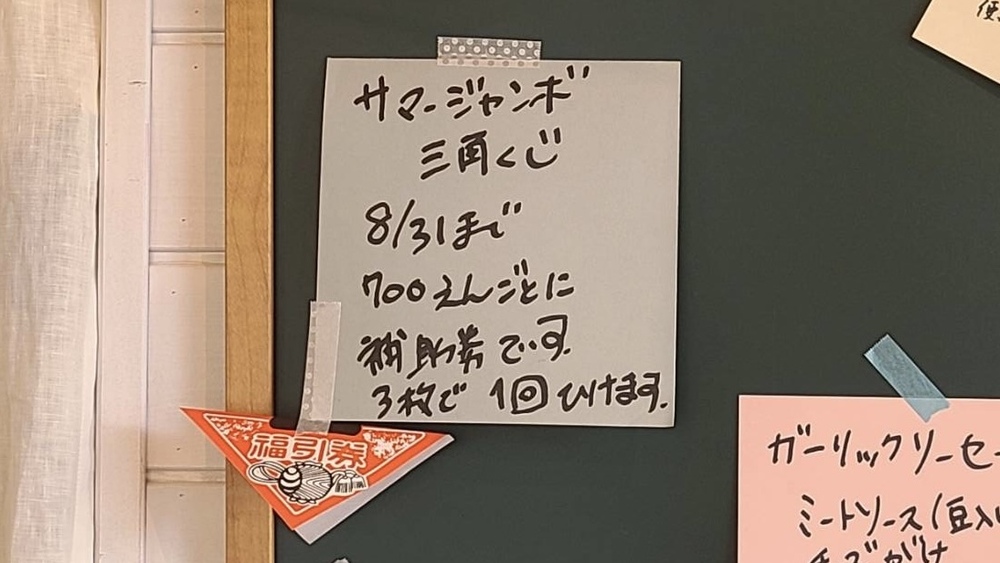 サマージャンボ
三角くじ
8/31まで
700えんごとに
補助券です.
3枚で 1回ひけます.
福引券
ガーリックソーセー
ミートソース(豆入り
チーズがけ